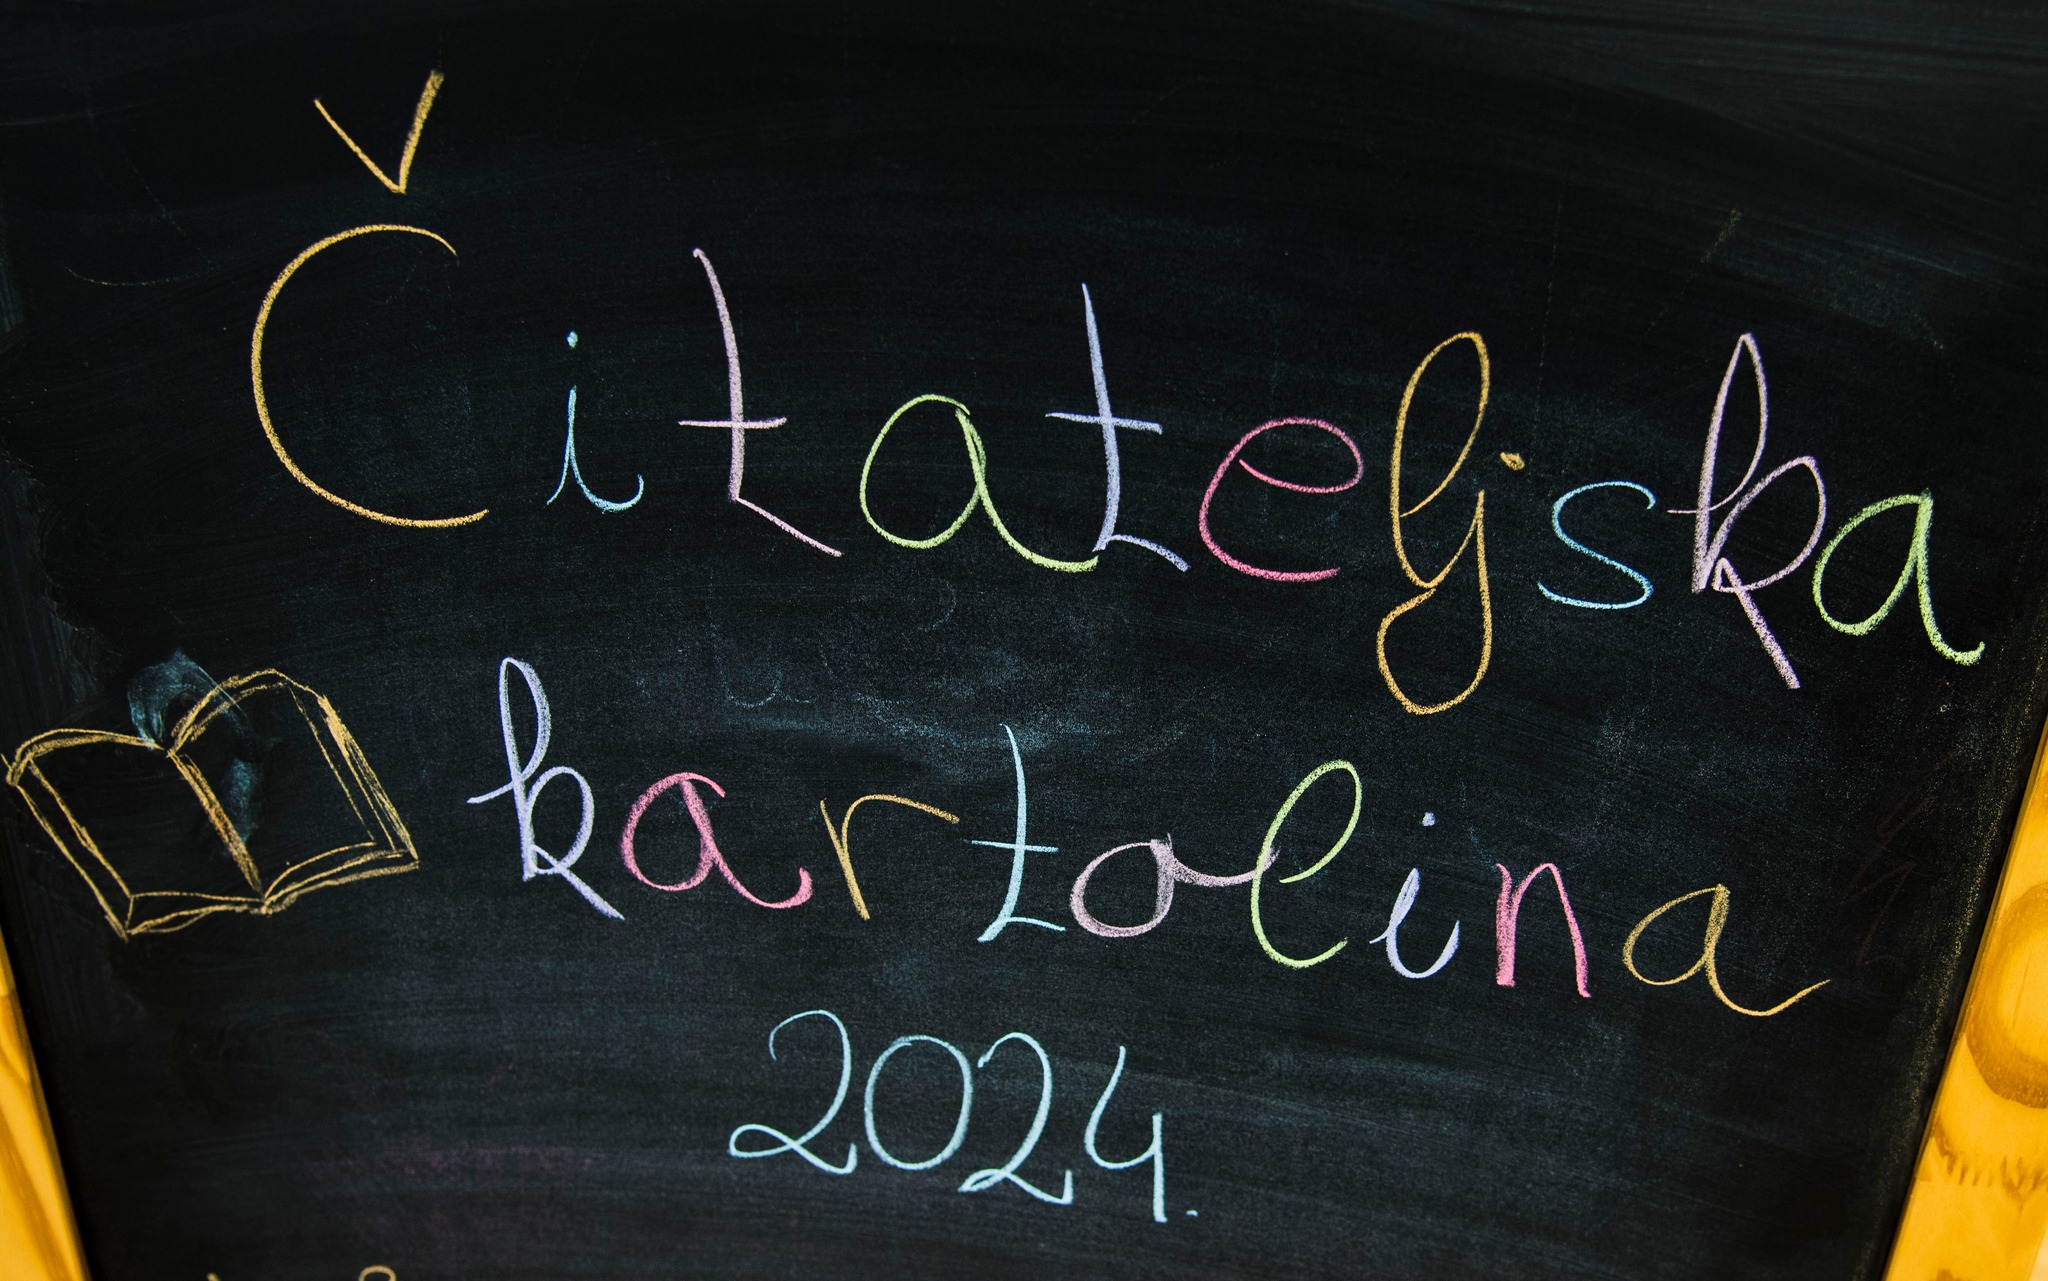 Čitateljska
kartolina
2024.